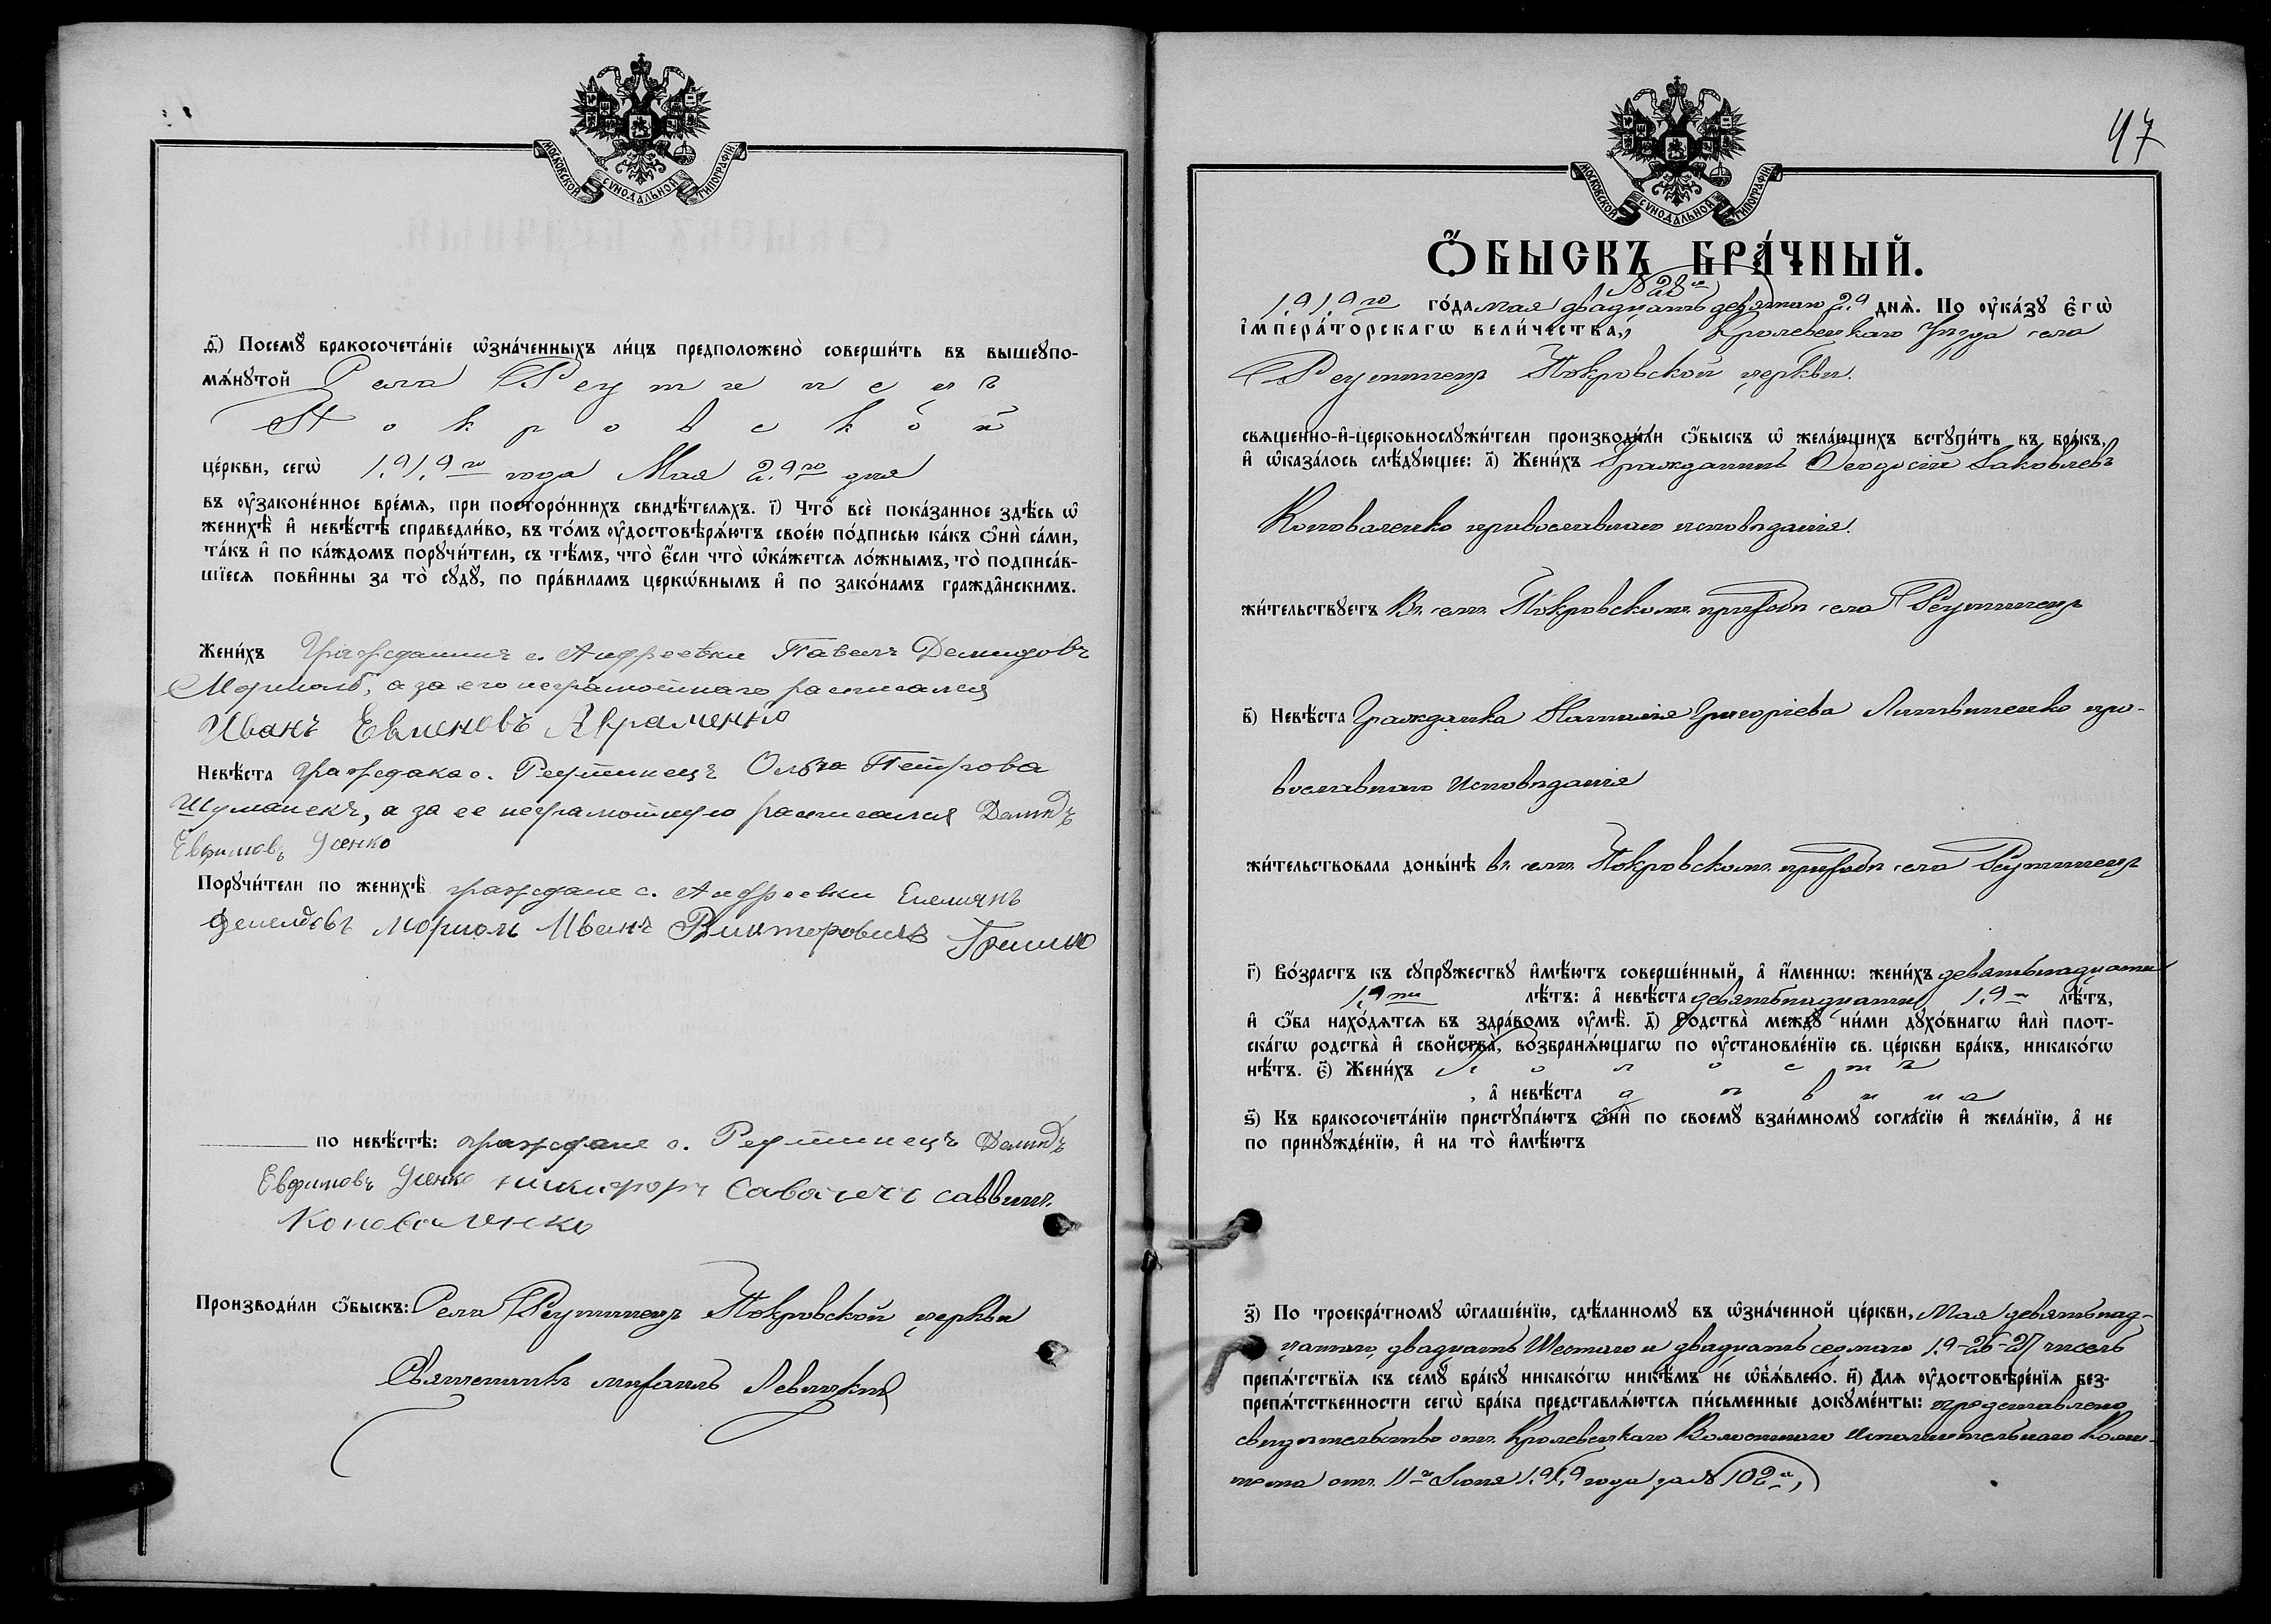 МОСКОВСКОЙ СѴНОДАЛЬНОЙ ТИПОГРАФІИ
д҃і) Посемꙋ̀ бракосочета́нїе ѡ҆зна́ченныхъ ли́цъ предположено̀ соверши́ть въ вышеꙋпо-
мѧ́нꙋтой Села Реутинецъ
Покровской
це́ркви, сегѡ̀ 1919го года Мая 29го дня
въ ᲂу҆законе́нное вре́мѧ, при посторо́ннихъ свидѣ́телѧхъ. і҃) Что̀ всѐ пока́занное здѣ́сь ѡ҆
женихѣ̀ и҆ невѣ́стѣ справедли́во, въ то́мъ ᲂу҆достовѣрѧ́ютъ свое́ю по́дписью ка́къ ѻ҆нѝ са́ми,
та́къ и҆ по ка́ждомъ порꙋчи́тели, съ тѣ́мъ, что̀ є҆́сли что̀ ѡ҆ка́жетсѧ ло́жнымъ, то̀ подписа́в-
шїесѧ пови́нны за то̀ сꙋдꙋ̀, по пра́виламъ церкѡ́внымъ и҆ по зако́намъ гражда́нскимъ.
Жени́хъ Гражданинъ с. Андреевки Павелъ Демидовъ
Мормоль, а за его неграмотнаго расписался
Иванъ Евменовъ Авраменко
Невѣ́ста гражданка с. Реутинецъ Ольга Петрова
Шуманекъ, а за ее неграмотную расписался Демидъ
Евфимовъ Усенко
Порꙋчи́тели по женихѣ̀ граждане с. Андреевки
Демидовъ Мормоль Иванъ Викторовичъ Гришко
по невѣ́стѣ: граждане с. Реутинецъ Демидъ
Евфимовъ Усенко Никифоръ Саввичъ
Коноваленко
Производи́ли ѻ҆́быскъ: Села Реутинецъ Покровской церкви
Священникъ Михаилъ Левицкій
47
МОСКОВСКОЙ СѴНОДАЛЬНОЙ ТИПОГРАФІИ
Ѻ҆́БЫСКЪ БРА́ЧНЫЙ.
№ 28й
1919го го́да мая двадцать девятаго 29 днѧ̀. По ᲂу҆ка́зꙋ Є҆гѡ̀
І҆мпера́торскагѡ вели́чества, Кролевецкаго Уѣзда села
Реутинецъ Покровской церкви.
свѧщенно-и҆-церковнослꙋжи́тели производи́ли ѻ҆́быскъ ѡ҆ жела́ющихъ встꙋпи́ть въ бра́къ,
и҆ ѡ҆каза́лось слѣ́дꙋющее: а҃) Жени́хъ Гражданинъ Феодосій Іаковлевъ
Коноваленко православнаго исповѣданія.
жи́тельствꙋетъ Въ семъ Покровскомъ приходѣ села Реутинецъ
в҃) Невѣ́ста Гражданка Наталія Григоріева Литвиненко пра-
вославнаго Исповѣданія
жи́тельствовала доны́нѣ въ семъ Покровскомъ приходѣ села Реутинецъ
г҃) Во́зрастъ къ сꙋпрꙋ́жествꙋ и҆мѣ́ютъ соверше́нный, а҆ и҆́меннѡ: жени́хъ девятьнадцати
19ти лѣ́тъ: а҆ невѣ́ста девятьнадцати 19 лѣ́тъ,
и҆ ѻ҆́ба нахо́дѧтсѧ въ здра́вомъ ᲂу҆мѣ̀. д҃) Родства̀ междꙋ̀ ни́ми дꙋхо́внагѡ и҆лѝ плот-
ска́гѡ родства̀ и҆ свойства̀, возбранѧ́ющагѡ по ᲂу҆становле́нїю св. це́ркви бра́къ, никако́гѡ
нѣ́тъ. є҃) Жени́хъ холостъ
, а҆ невѣ́ста дѣвица
ѕ҃) Къ бракосочета́нїю пристꙋпа́ютъ ѻ҆нѝ по своемꙋ̀ взаи́мномꙋ согла́сїю и҆ жела́нїю, а҆ не
по принꙋжде́нїю, и҆ на то̀ и҆мѣ́ютъ
з҃) По троекра́тномꙋ ѡ҆глаше́нїю, сдѣ́ланномꙋ въ ѡ҆зна́ченной це́ркви, Мая девятьнад-
цатаго, двадцать Шестаго и двадцать седмаго 19-26-27 чиселъ
препѧ́тствїѧ къ семꙋ̀ бра́кꙋ никако́гѡ никѣ́мъ не ѡ҆б̾ѧ́влено. и҃) Длѧ ᲂу҆достовѣре́нїѧ без-
препѧ́тственности сегѡ̀ бра́ка представлѧ́ютсѧ пи́сьменные докꙋме́нты: представлено
свидѣтельство отъ Кролевецкаго Волостнаго Исполнительнаго Коми-
тета отъ 11го Іюня 1919 года за № 102й,